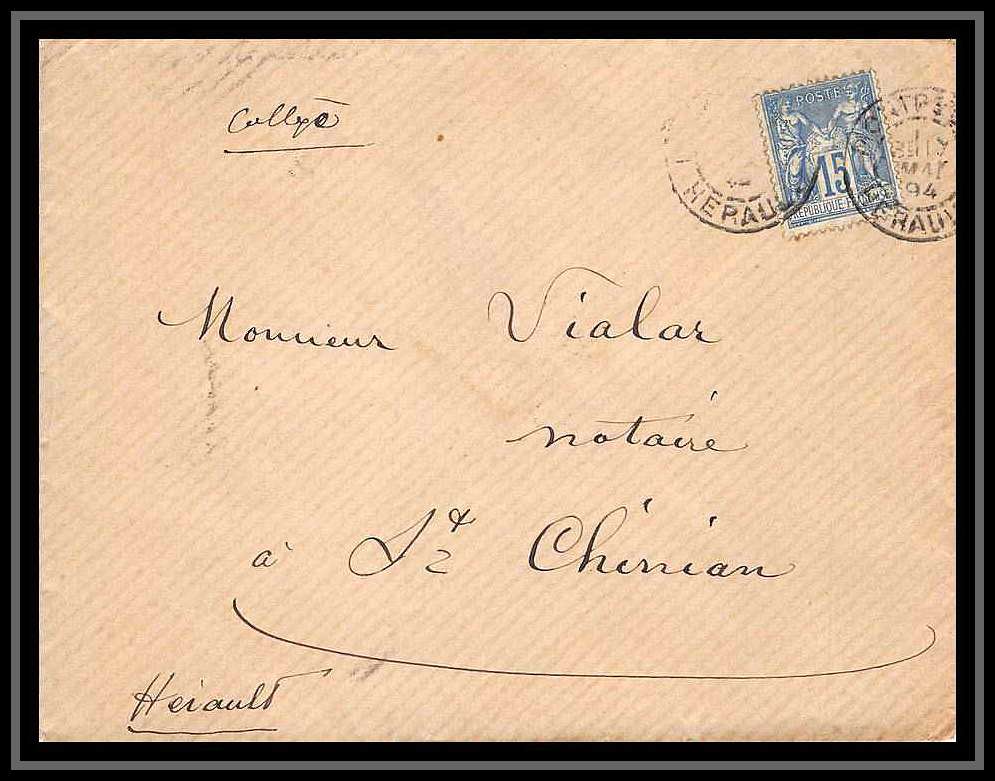 Collège
POSTES
15
REPUBLIQUE FRANÇAISE
HERAULT
MAI
94
HERAULT
Monsieur Vialar
notaire
à St Chinian
Hérault